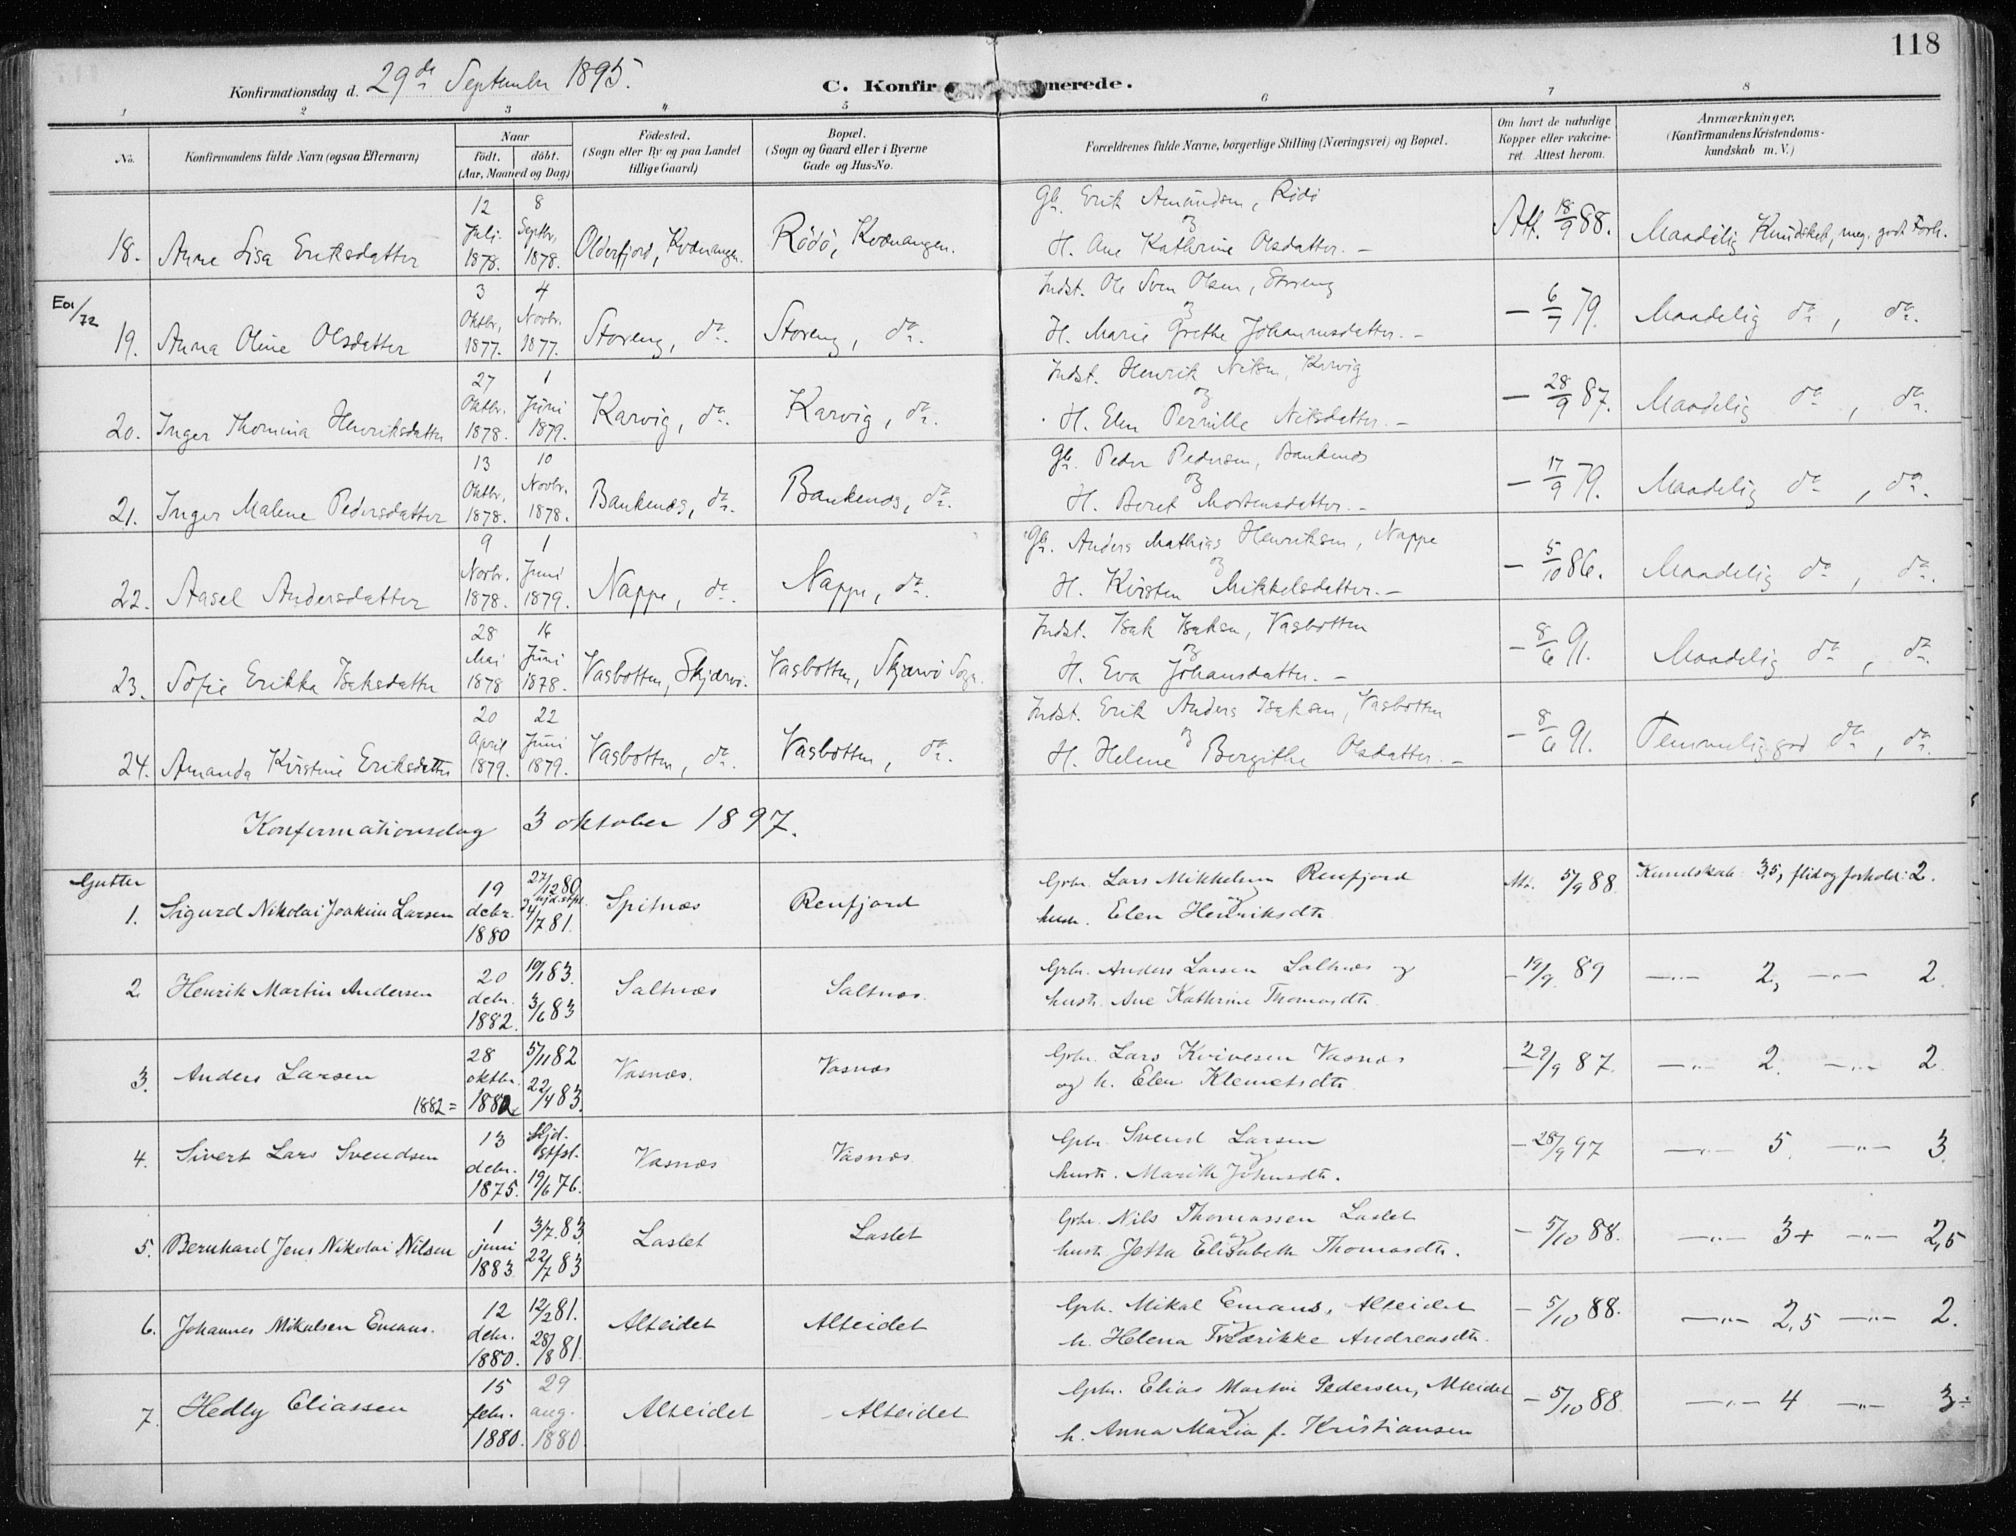 118
Konfirmationsdag d. 29de September 1895.
C. Konfir merede.
1 2 3 4 5 6 7 8
No. Konfirmandens fulde Navn (ogsaa Efternavn) Naar født. døbt. (Aar, Maaned og Dag) Fødested. (Sogn eller By og paa Landet tillige Gaard) Bopæl. (Sogn og Gaard eller i Byerne Gade og Hus-No. Forældrenes fulde Navne, borgerlige Stilling (Næringsvei) og Bopæl. Om havt de naturlige Kopper eller vakcineret. Attest herom. Anmærkninger. (Konfirmandens Kristendomskundskab m. V.)
18. Anne Lisa Eriksdatter 12 Juli 1878. 8 Septbr. 1878. Olderfjord, Kvænangen. Rødø, Kvænangen. Gbr. Erik Amundsen, Rødø
og
H. Ane Kathrine Olsdatter. — Att. 18/9 88. Maadelig Kundskab, meg. godt Forh.
E01/72
19. Anna Oline Olsdatter 3 Oktbr. 1877. 4 Novbr. 1877. Storeng, do. Storeng, do. Indst. Ole Sven Olsen, Storeng
og
H. Marie Grethe Johannesdatter. — — 6/7 79. Maadelig do, do.
20. Inger Thomina Henriksdatter 27 Oktbr. 1878. 1 Juni 1879. Karvig, do. Karvig, do. Indst. Henrik Nilsen, Karvig
og
H. Elen Pernille Nilsdatter. — — 28/9 87. Maadelig do, do.
21. Inger Malene Pedersdatter 13 Oktbr. 1878. 10 Novbr. 1878. Bankenæs, do. Bankenæs, do. Gbr. Peder Pedersen, Bankenæs
og
H. Beret Mortensdatter. — — 17/9 79. Maadelig do, do.
22. Aasel Andersdatter 9 Novbr. 1878. 1 Juni 1879. Nappe, do. Nappe, do. Gbr. Anders Mathias Henriksen, Nappe
og
H. Kirsten Mikkelsdatter. — — 5/10 86. Maadelig do, do.
23. Sofie Erikka Isaksdatter 28 Mai 1878 16 Juni 1878. Vasbotten, Skjærvø. Vasbotten, Skjærvø Sogn. Indst. Isak Isaksen, Vasbotten
og
H. Eva Johansdatter. — — 8/6 91. Maadelig do, do.
24. Amanda Kirstine Eriksdatter 20 April 1879. 22 Juni 1879. Vasbotten, do. Vasbotten, do. Indst. Erik Anders Isaksen, Vasbotten
og
H. Helene Bergithe Olsdatter. — — 8/6 91. Temmelig god do, do.
Konfirmationsdag 3 oktober 1897.
Gutter
1. Sigurd Nikolai Joakim Larsen 19 debr. 1880 27/12 80 hjd. stfst. 4/7 81. Spitnæs Renfjord Gbr. Lars Mikkelsen Renfjord
og
hustr. Elen Henriksdtr. Att. 5/9 88. Kundskab: 3,5, flid og forhold: 2.
2 Henrik Martin Andersen 20 debr. 1882. 10/1 83. 3/6 83 Saltnæs Saltnæs. Gbr. Anders Larsen Saltnæs og
hustr. Ane Kathrine Thomasdtr. — 19/9 89 —"— 2, —"— 2.
3. Anders Larsen 1882 = 28 oktbr. 1882 5/11 82 22/4 83. Vasnæs. Vasnæs Gbr. Lars Kvivesen Vasnæs
og h. Elen Klemetsdtr. — 29/9 87. —"— 2. —"— 2.
4. Sivert Lars Svendsen 13 debr. 1875. Hjd. stfst. 19/6 76. Vasnæs Vasnæs Gbr. Svend Larsen
og
hustr. Marith Johnsdtr. — 28/9 97 —"— 5. —"— 3.
5. Bernhard Jens Nikolai Nilsen 1 juni 1883 3/7. 83. 22/7 83 Laslet Laslet Gbr. Nils Thomassen Laslet
og
hustr. Jetta Elisabeth Thomasdtr. — 5/10 88. —"— 3+ —"— 2,5
6. Johannes Mikalsen Emaus. 12 debr. 1880. 12/2 81. 28/8 81. Alteidet Alteidet Gbr. Mikal Emaus, Alteidet
og
h. Helena Fredrikke Andreasdtr. — 5/10 88. —"— 2,5 —"— 2.
7. Hedly Eliassen 15 febr. 1880. 29 aug. 1880 Alteidet — Alteidet Gbr. Elias Martin Pedersen, Alteidet
og
h. Anna Maria f. Kristiansen — 5/10 88. —"— 4 —"— 3÷